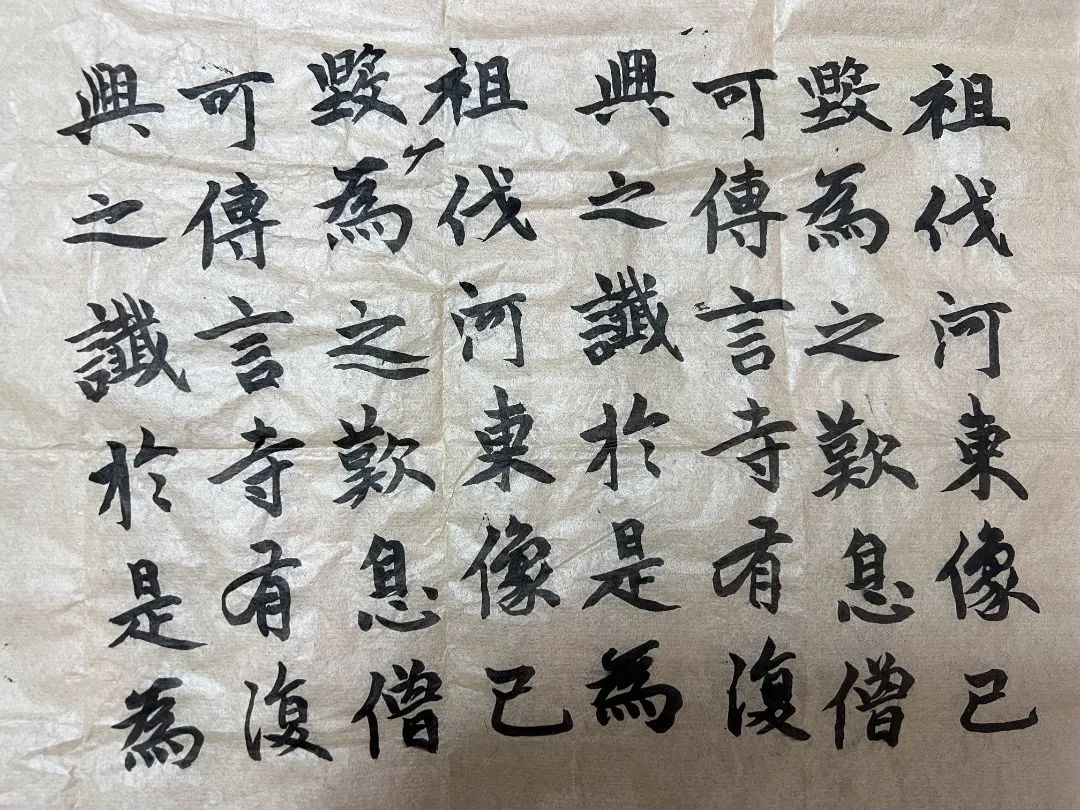 祖伐河東像已
毀為之歎息僧
可傳言寺有復
興之讖於是為
祖伐河東像已
毀為之歎息僧
可傳言寺有復
興之讖於是為